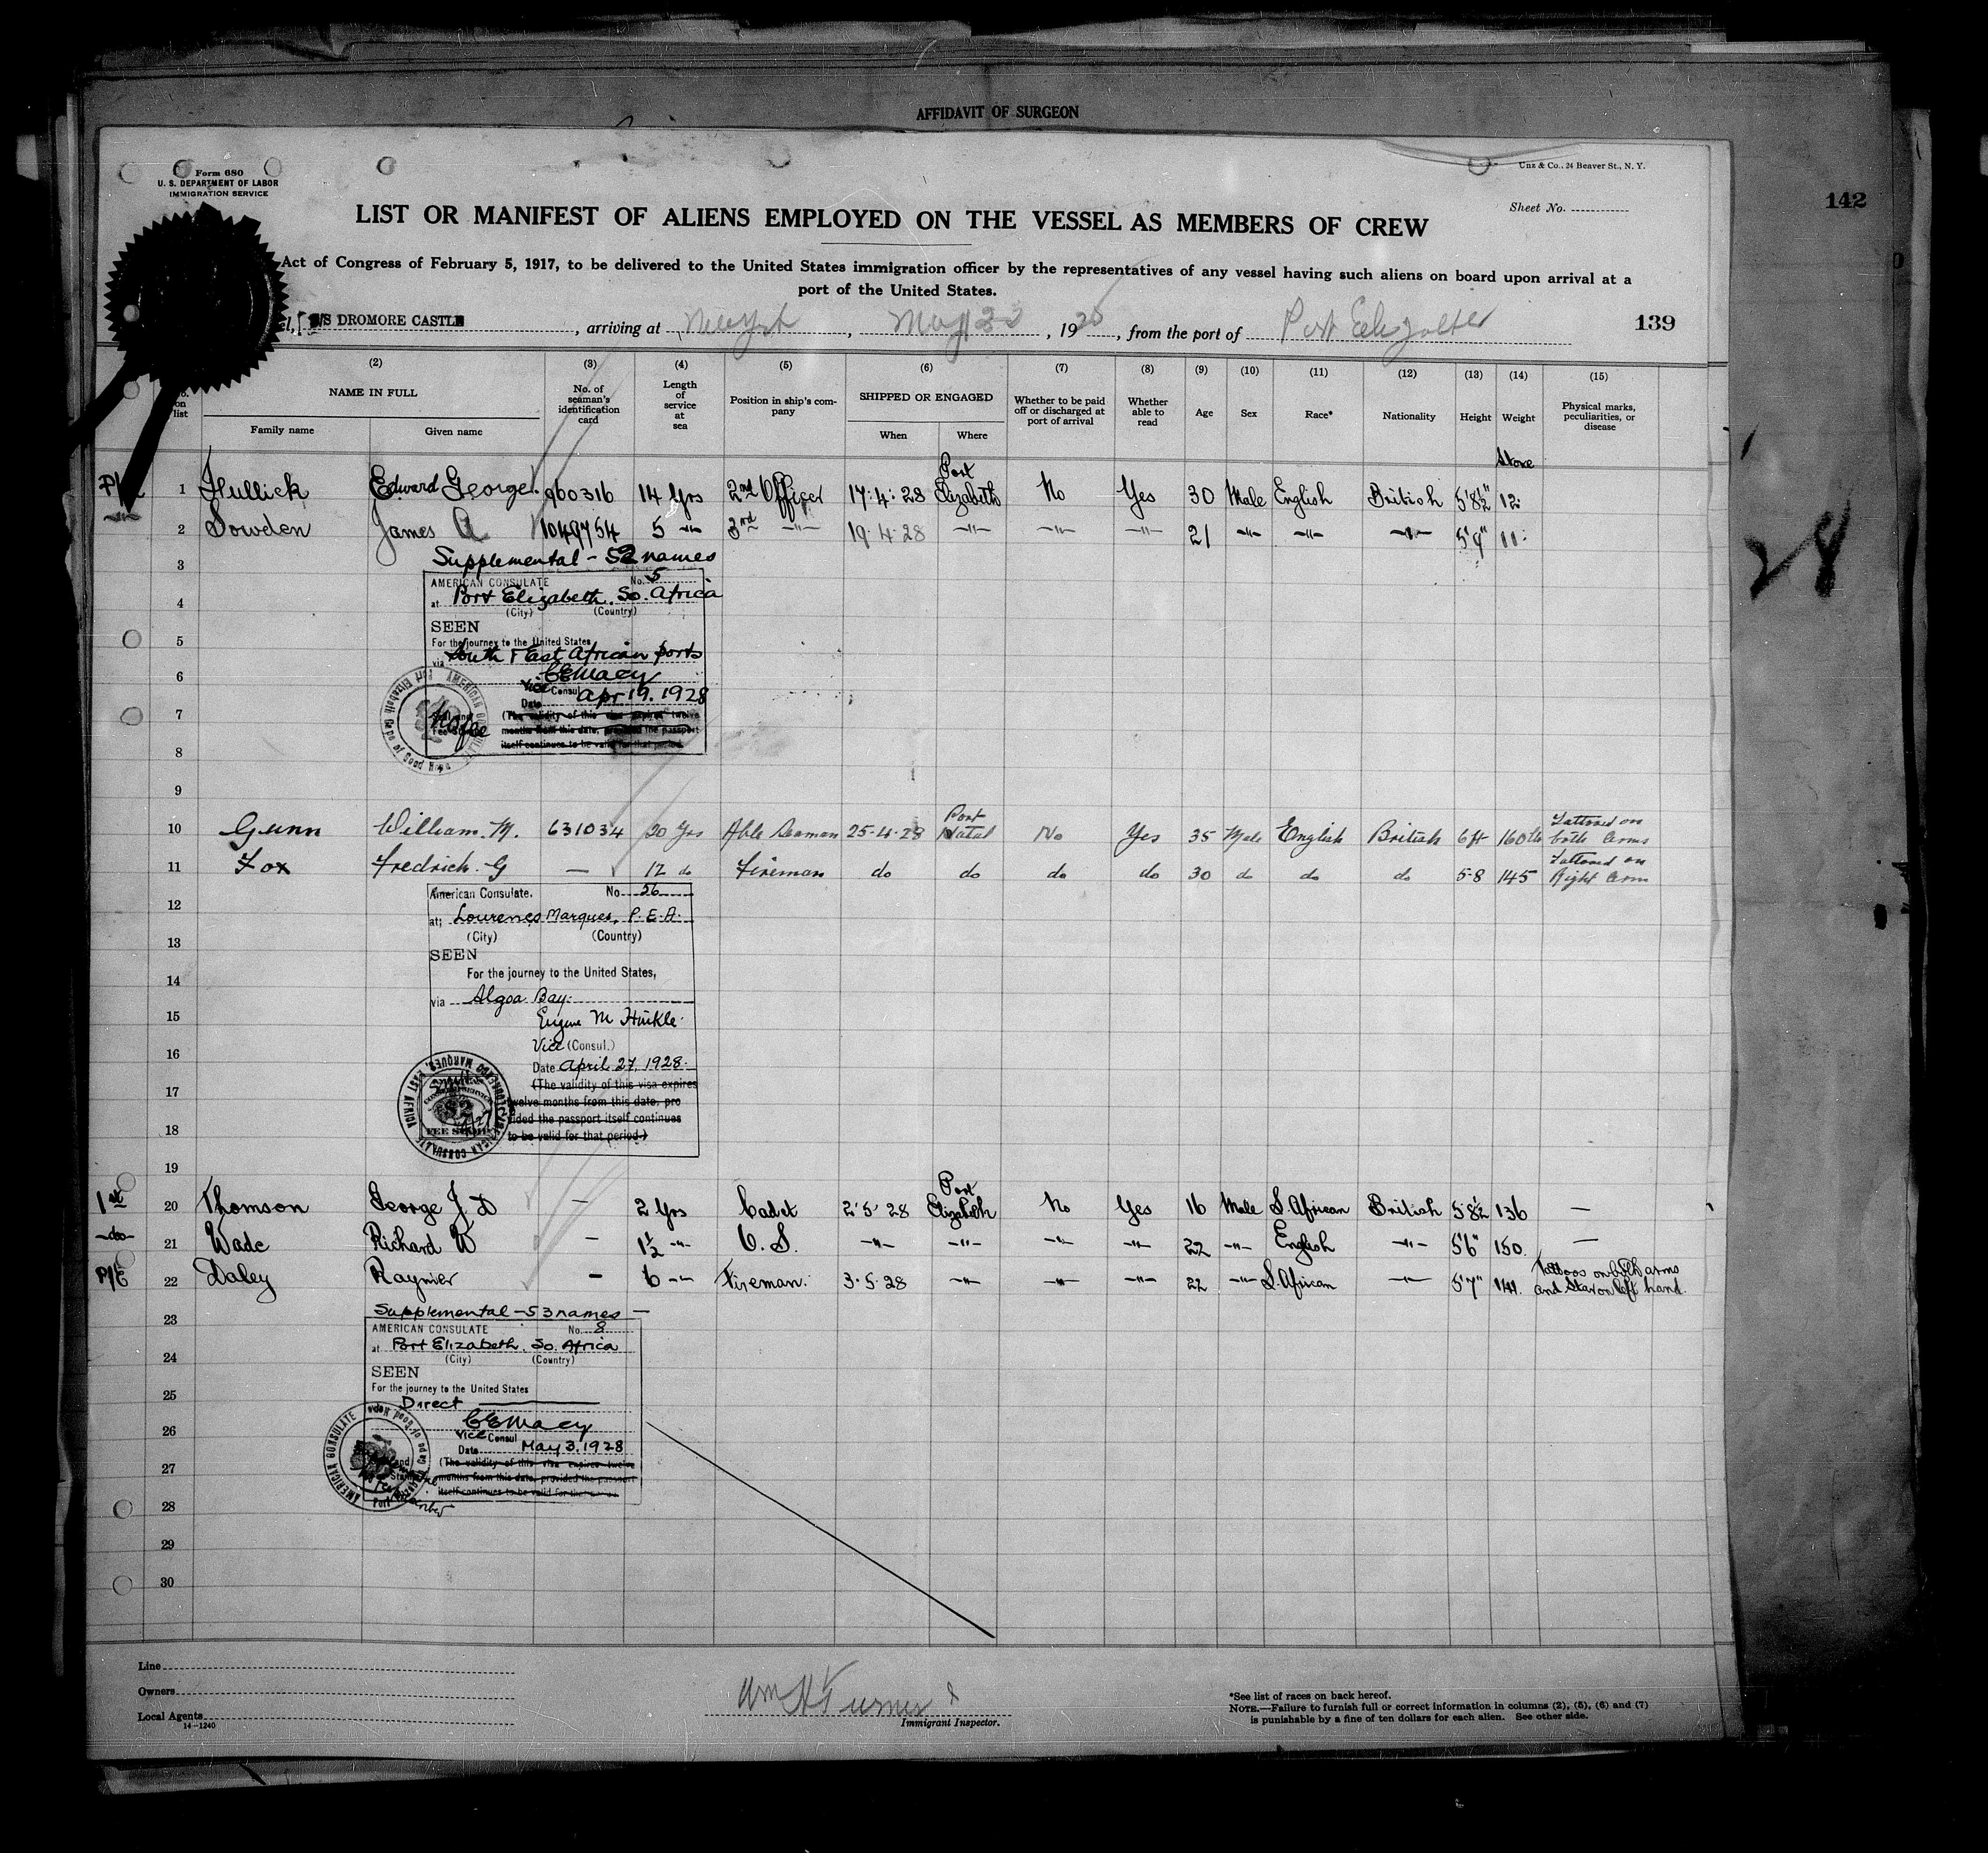 AFFIDAVIT OF SURGEON
142
Form 680
U. S. DEPARTMENT OF LABOR
IMMIGRATION SERVICE
Unz & Co., 24 Beaver St., N. Y.
Sheet No.
LIST OR MANIFEST OF ALIENS EMPLOYED ON THE VESSEL AS MEMBERS OF CREW
Act of Congress of February 5, 1917, to be delivered to the United States immigration officer by the representatives of any vessel having such aliens on board upon arrival at a
port of the United States.
S/S DROMORE CASTLE, arriving at New York, May 23, 1928, from the port of Port Elizabeth
139
(2) (3) (4) (5) (6) (7) (8) (9) (10) (11) (12) (13) (14) (15)
on list NAME IN FULL Family name Given name No. of seaman's identification card Length of service at sea Position in ship's company SHIPPED OR ENGAGED When Where Whether to be paid off or discharged at port of arrival Whether able to read Age Sex Race* Nationality Height Weight Physical marks, peculiarities, or disease
Stone
1 Hullick Edward George 960316 14 Yrs 2nd Officer 17·4·28 Port Elizabeth No Yes 30 Male English British 5'8½" 12·
2 Sowden James A 1049754 5 -"- 3rd -"- 19·4·28 -"- -"- -"- 21 -"- -"- -"- 5'9" 11·
28
3 Supplemental - 52 names
AMERICAN CONSULATE No. 5
4 at Port Elizabeth, So. Africa
(City) (Country)
5 SEEN
For the journey to the United States
via South & East African ports
6 CEMacy
Vice Consul
Date Apr. 19. 1928
7 (The validity of this visa expires twelve
No fee months from this date, provided the passport
8 itself continues to be valid for that period.
9
10 Gunn William. M. 631034 20 Yrs Able Seaman 25·4·28 Port Natal No Yes 35 Male English British 6 ft 160 lb Tattooed on both Arms
11 Fox Fredrich. G — 12 do Fireman do do do do 30 do do do 5-8 145 Tattooed on Right Arm
American Consulate. No 56
12 at; Lourenço Marques, P.E.A.
13 (City) (Country)
SEEN
14 For the journey to the United States,
via Algoa Bay.
15 Eugene M Hinkle
Vice (Consul.)
16 Date April 27, 1928
17 (The validity of this visa expires
twelve months from this date, pro
vided the passport itself continues
18 to be valid for that period.)
19
1st 20 Thomson George J. D — 2 Yrs Cadet 2·5·28 Port Elizabeth No Yes 16 Male S. African British 5'8½ 136 —
-do- 21 Wade Richard W — 1½ -"- O. S. -"- -"- -"- -"- 22 -"- English -"- 5'6" 150. —
P/E 22 Daley Raynier — 6 -"- Fireman. 3·5·28 -"- -"- -"- 22 -"- S. African -"- 5'7" 144. Tattoos on both arms and Star on left hand.
23 Supplemental - 53 names —
AMERICAN CONSULATE No. 8
24 at Port Elizabeth, So. Africa
(City) (Country)
SEEN
25 For the journey to the United States
Direct
26 CEMacy
Vice Consul
Date May 3, 1928
27 (The validity of this visa expires twelve
months from this date, provided the passport
itself continues to be valid for
28
29
30
Line
Owners
Local Agents
14—1240
Wm H Turner
Immigrant Inspector.
*See list of races on back hereof.
NOTE.—Failure to furnish full or correct information in columns (2), (5), (6) and (7)
is punishable by a fine of ten dollars for each alien. See other side.